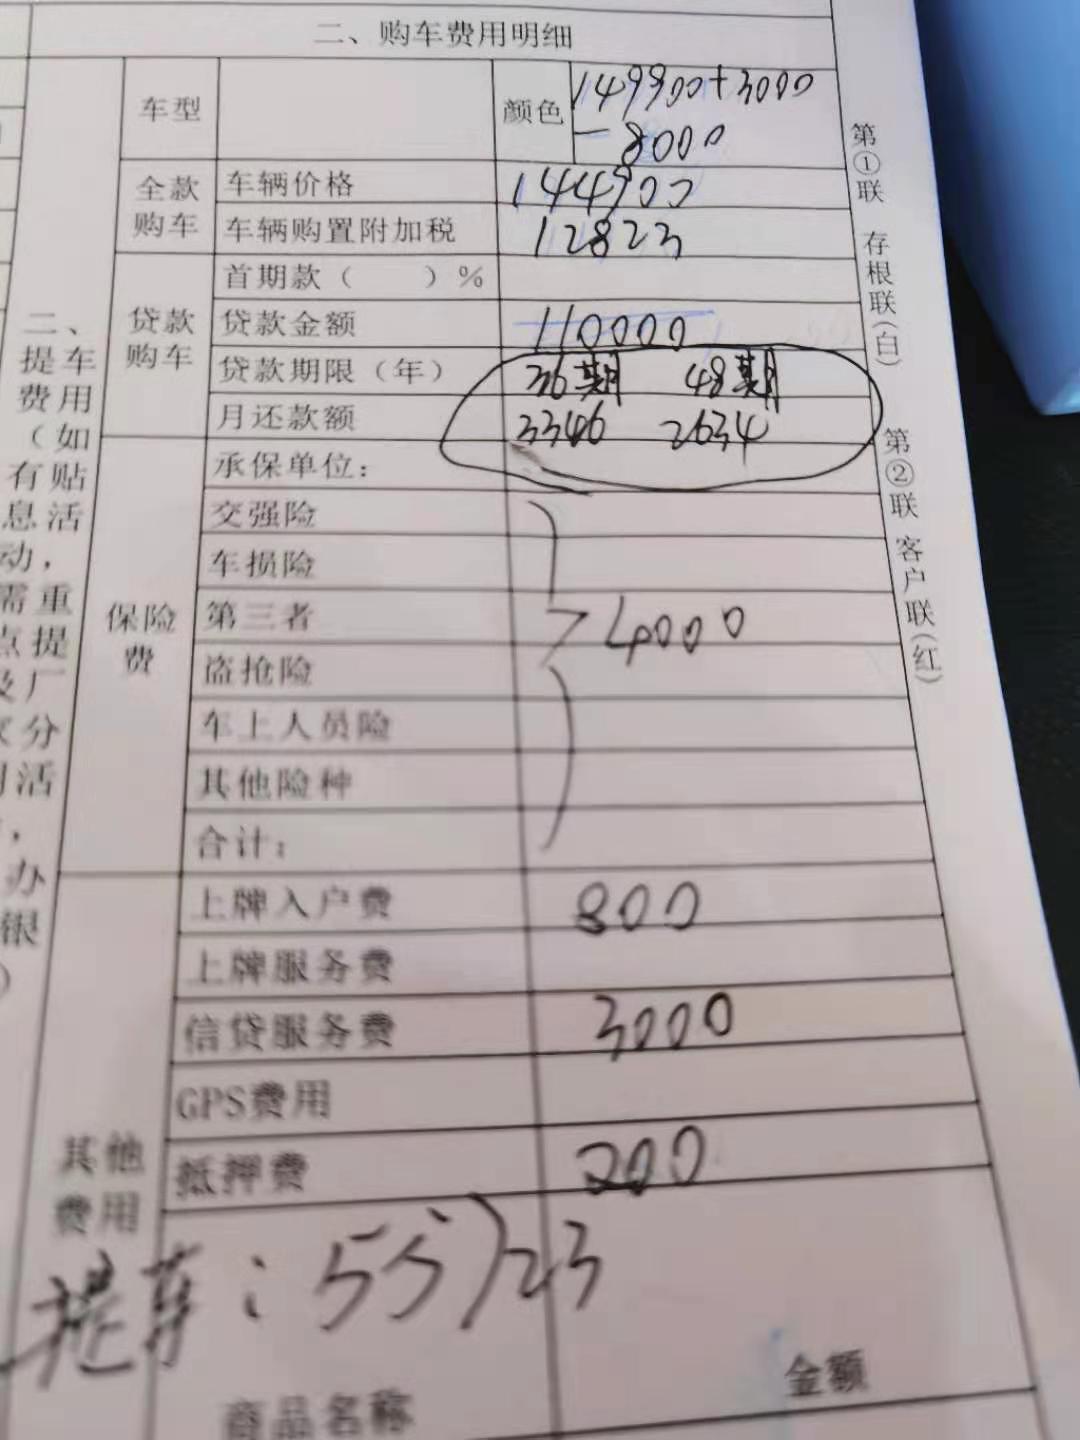 二、购车费用明细
车型 颜色 149900+3000
-8000
全款购车 车辆价格 144900
车辆购置附加税 12823
贷款购车 首期款（ ）%
贷款金额 110000
贷款期限（年） 36期 48期
月还款额 3346 2634
保险费 承保单位：
交强险
车损险
第三者 4000
盗抢险
车上人员险
其他险种
合计：
其他费用 上牌入户费 800
上牌服务费
信贷服务费 3000
GPS费用
抵押费 200
提车：55723
商品名称 金额
二、
提车
费用
（如
有贴
息活
动，
需重
点提
及厂
家分
期活
办
银
）
第①联 存根联（白）
第②联 客户联（红）